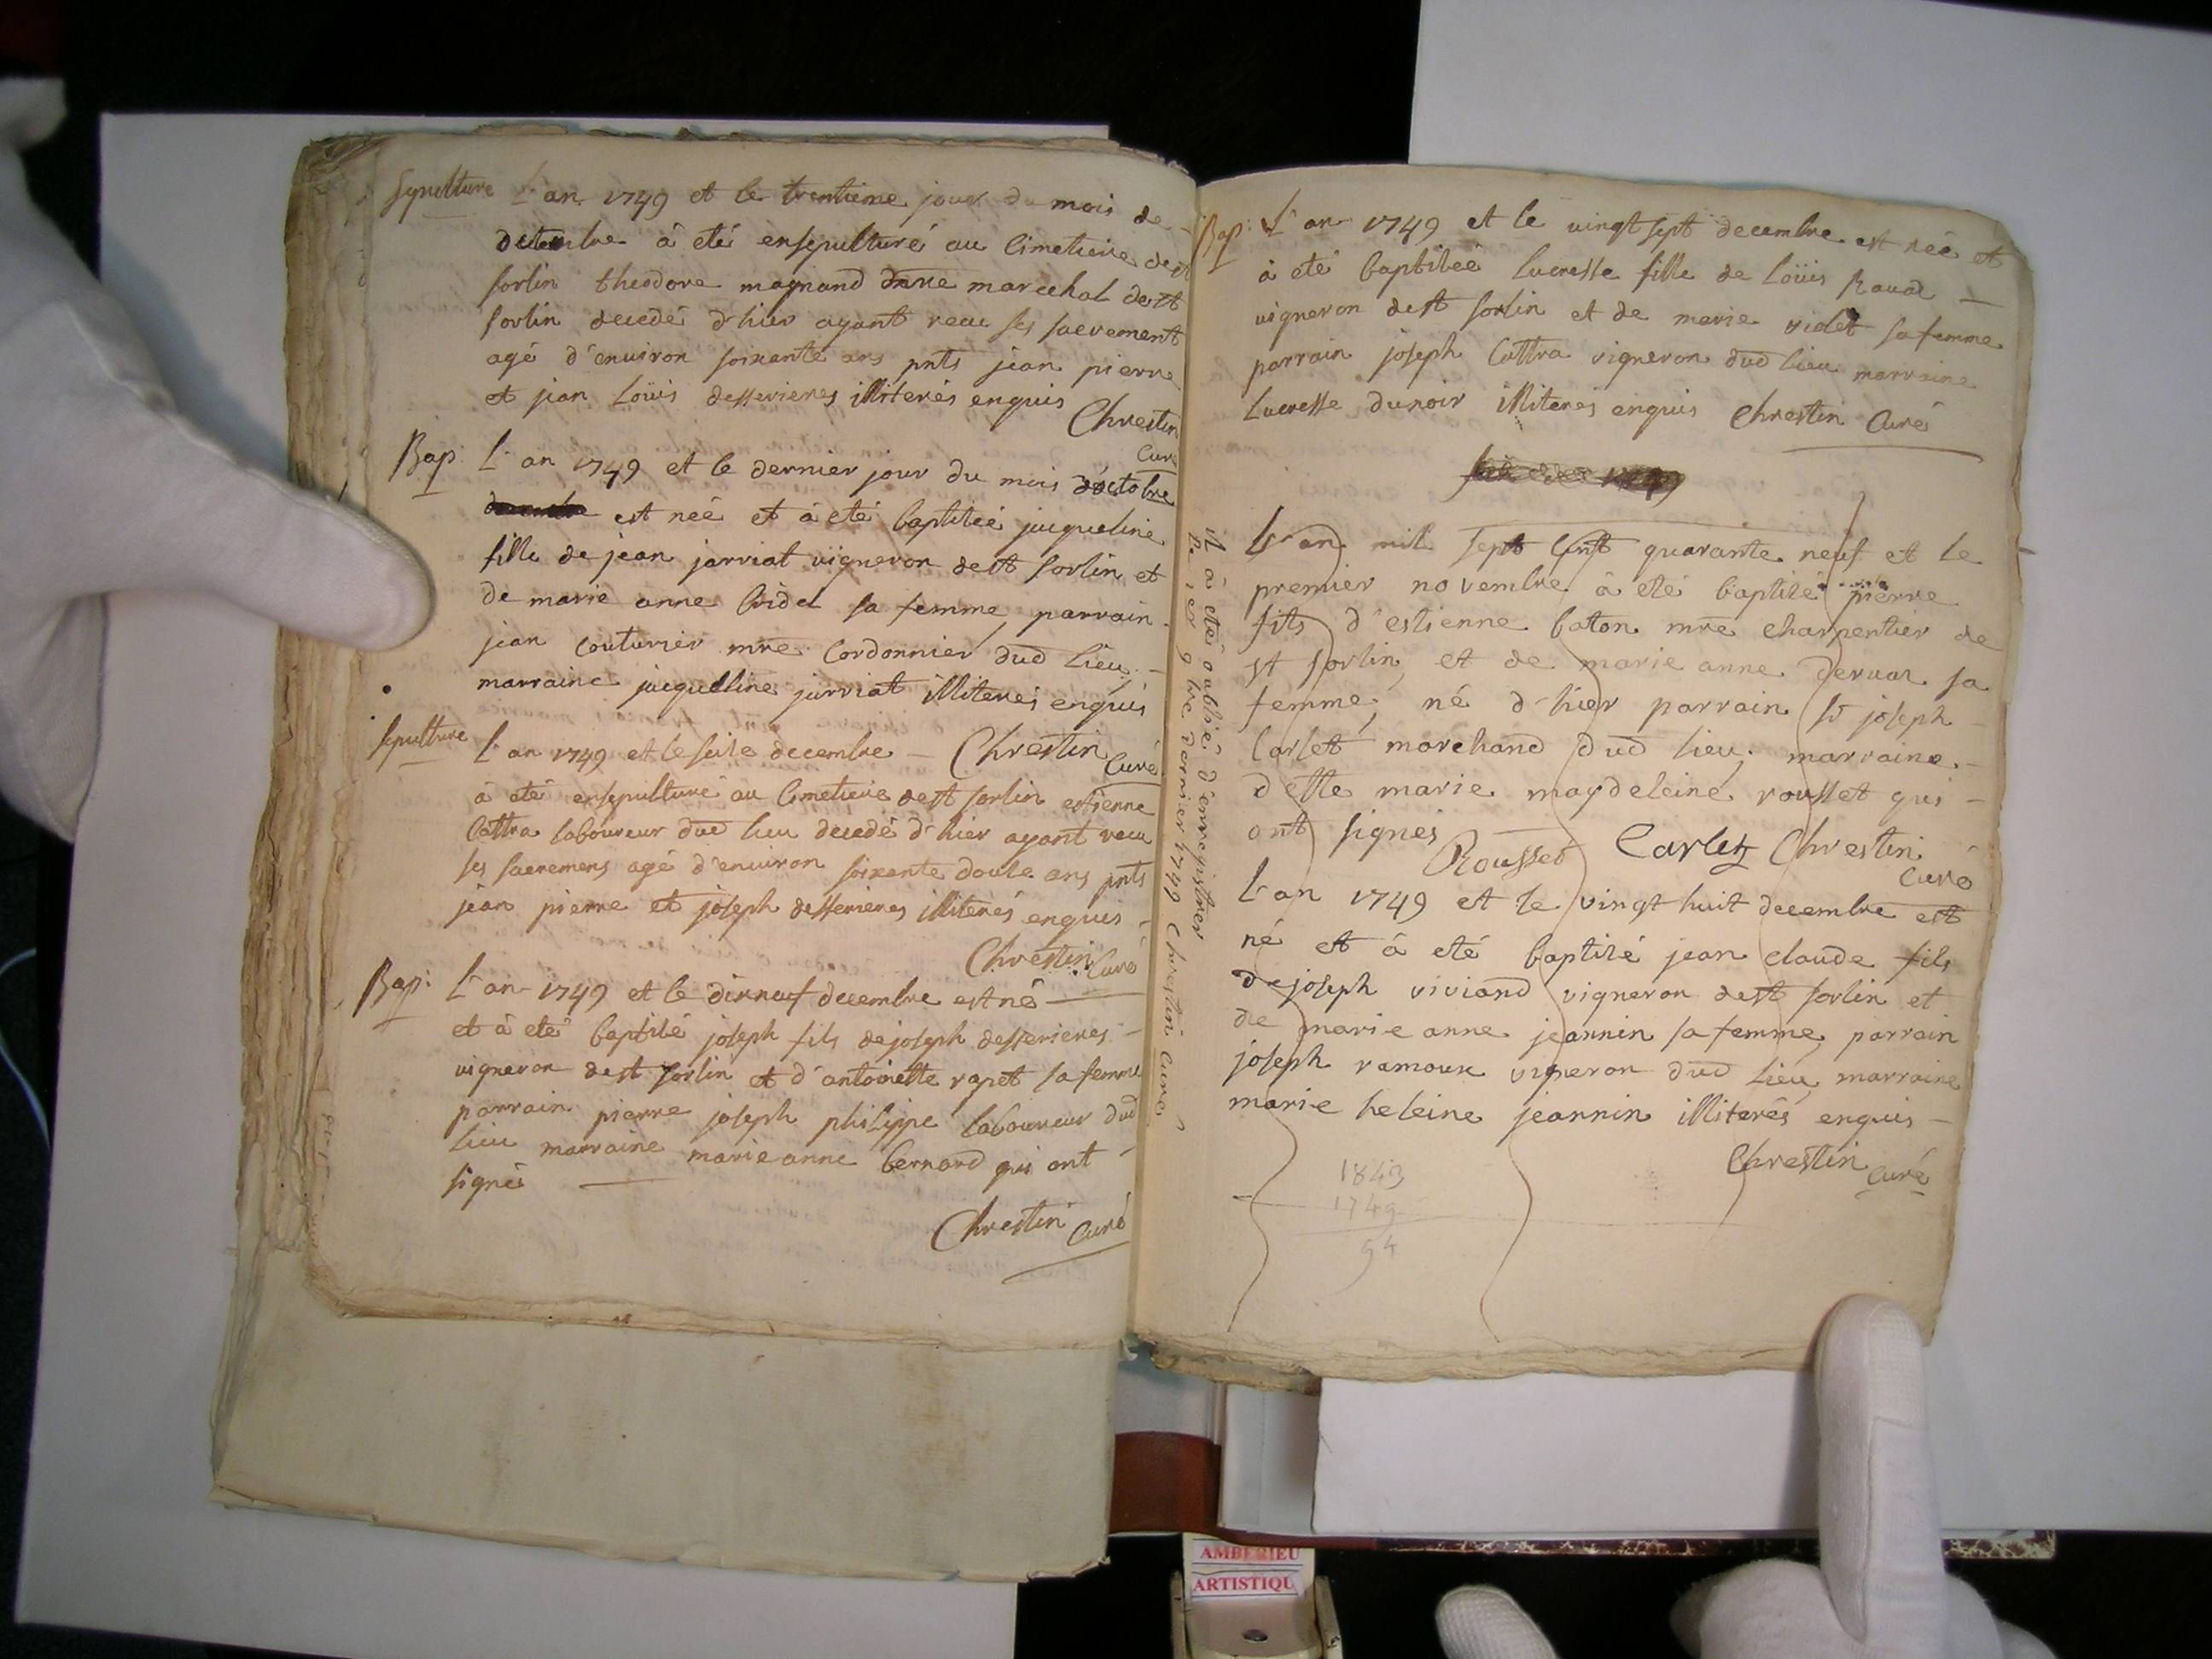 Sepulture L'an 1749 et le trentieme jour du mois de
à eté ensepulturé au Cimetiere de st
sorlin theodore magnand marechal de st
sorlin decedé d'hier ayant recu ses sacrement
agé d'environ soixante ans pnts jean pierre
et jean Loüis desserieres illiterés enquis
Chrestin
Curé
Bap: L'an 1749 et le dernier jour du mois d'octobre
est née et à eté baptisée jacqueline
fille de jean jarriat vigneron de st sorlin et
de marie anne sa femme, parrain
jean couturier mre Cordonnier dud lieu,
marraine jacqueline jarriat illiterés enquis
Sepulture L'an 1749 et le seize decembre — Chrestin Curé
à eté ensepulturé au Cimetiere de st sorlin estienne
Cottra laboureur dud lieu decedé d'hier ayant recu
ses sacremens agé d'environ soixante douze ans pnts
jean pierre et joseph desserieres illiterés enquis
Chrestin Curé
Bap: L'an 1749 et le dixneuf decembre est né
et à eté baptisé joseph fils de joseph desserieres
vigneron de st sorlin et d'antoinette rapet sa femme
parrain pierre joseph philippe laboureur dud
lieu marraine marie anne bernard qui ont
signés
Chrestin Curé
il à eté oublié d'enregistrer
9bre dernier 1749 Chrestin Curé
Bap: L'an 1749 et le vingt sept decembre est née et
à eté baptisée Lucresse fille de Loüis
vigneron de st sorlin et de marie violet sa femme
parrain joseph Cottra vigneron dud lieu marraine
Lucresse dunoir illiterés enquis Chrestin Curé
L'an mil sept cent quarante neuf et le
premier novembre à eté baptisé pierre
fils d'estienne baton mre charpentier de
st sorlin, et de marie anne sa
femme, né d'hier parrain sr joseph
Carlet marchand dud lieu, marraine
delle marie magdeleine rousset qui
ont signés
Rousset Carlet Chrestin
Curé
L'an 1749 et le vingt huit decembre est
né et à eté baptisé jean claude fils
de joseph viviand vigneron de st sorlin et
de marie anne jeannin sa femme, parrain
joseph ramoux vigneron dud lieu, marraine
marie heleine jeannin illiterés enquis
Chrestin Curé
1843
1749
94
AMBERIEU
ARTISTIQU